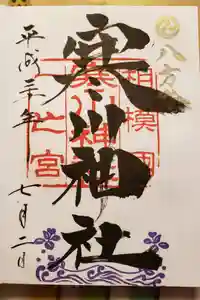 八方除
相模國
寒川神社
一之宮
平成三十年
七月二日